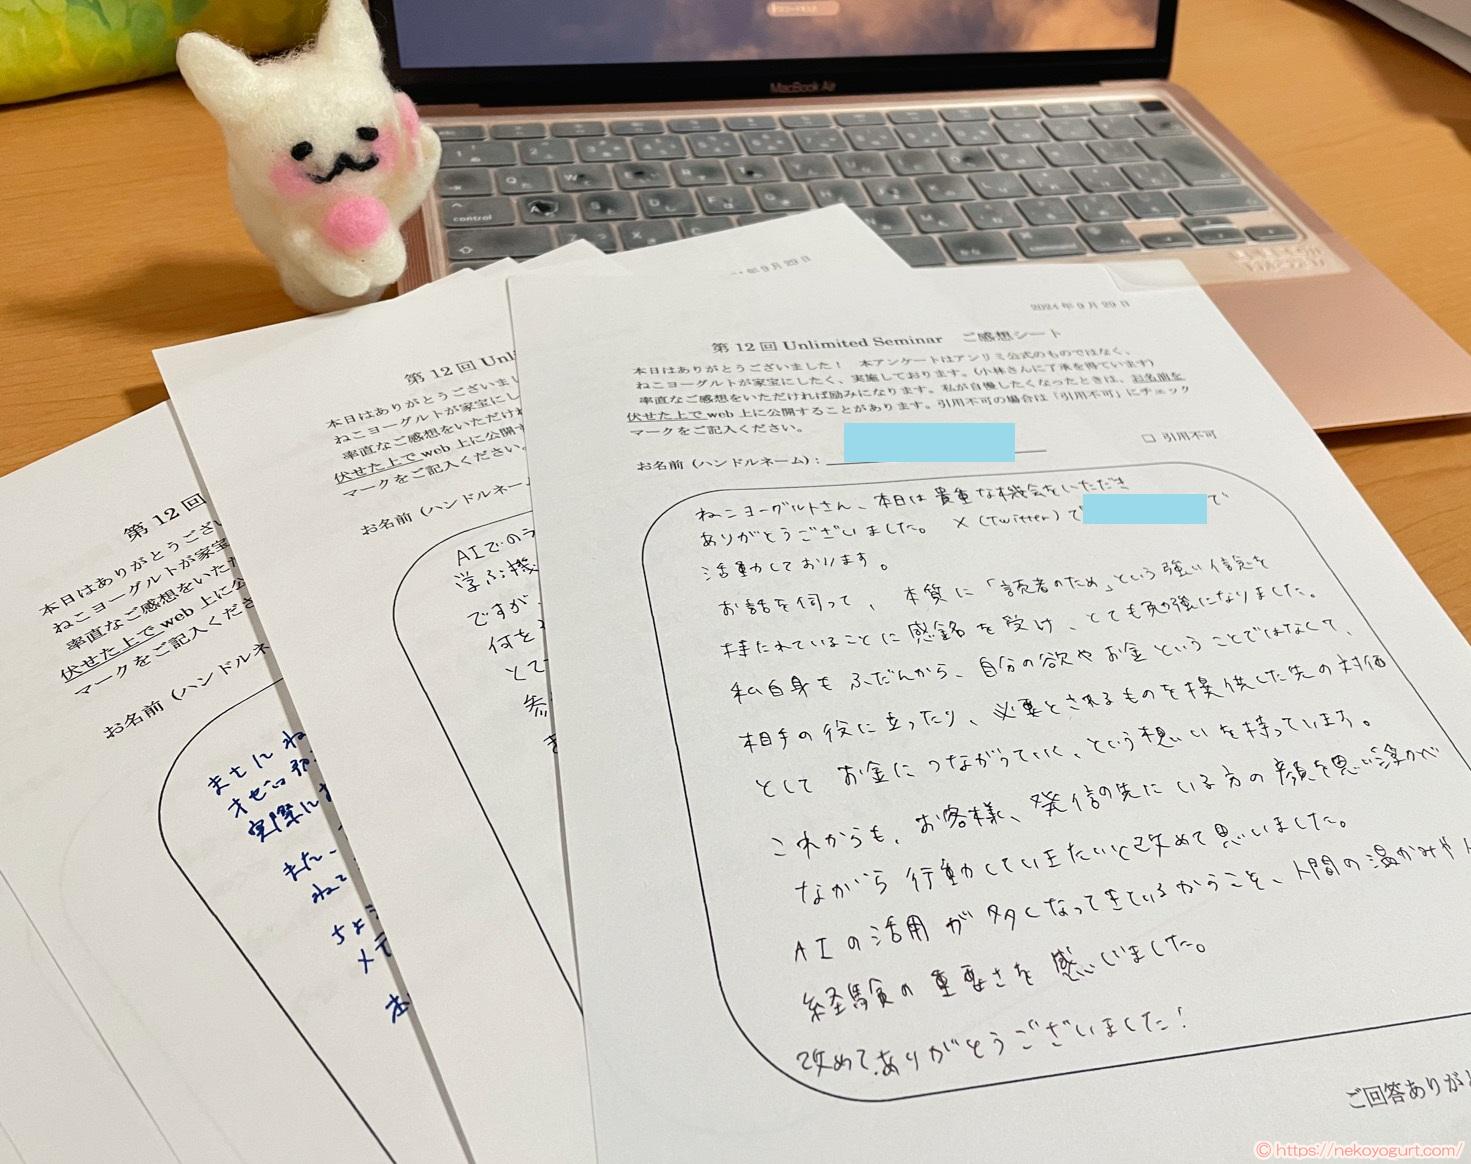 MacBook Air
control
2024年9月29日
第12回 Unlimited Seminar ご感想シート
本日はありがとうございました！ 本アンケートはアンリミ公式のものではなく、
ねこヨーグルトが家宝にしたく、実施しております。(小林さんに了承を得ています)
率直なご感想をいただければ励みになります。私が自慢したくなったときは、お名前を
伏せた上でweb上に公開することがあります。引用不可の場合は「引用不可」にチェック
マークをご記入ください。
□ 引用不可
お名前（ハンドルネーム）：
ねこヨーグルトさん、本日は貴重な機会をいただき
ありがとうございました。 X (Twitter)で で
活動しております。
お話を伺って、本質に「読者のため」という強い信念を
持たれていることに感銘を受け、とても勉強になりました。
私自身もふだんから、自分の欲やお金ということではなくて、
相手の役に立ったり、必要とされるものを提供した先の対価
としてお金につながっていく、という想いを持っています。
これからも、お客様、発信の先にいる方の顔を思い浮かべ
ながら行動していきたいと改めて思いました。
AIの活用が多くなってきているからこそ、人間の温かみや
経験の重要さを感じました。
改めてありがとうございました！
ご回答ありが
年9月29日
第12回 Unl
本日はありがとうございまし
ねこヨーグルトが家宝にし
率直なご感想をいただけれ
伏せた上でweb上に公開す
マークをご記入ください。
お名前（ハンドルネーム
AIでの
学ぶ機
ですが、
何を
第12回
本日はありがとうござい
ねこヨーグルトが家宝
率直なご感想をいた
伏せた上でweb上に公
マークをご記入くださ
お名前（ハンドルネ
実際に
また
ねこ
© https://nekoyogurt.com/